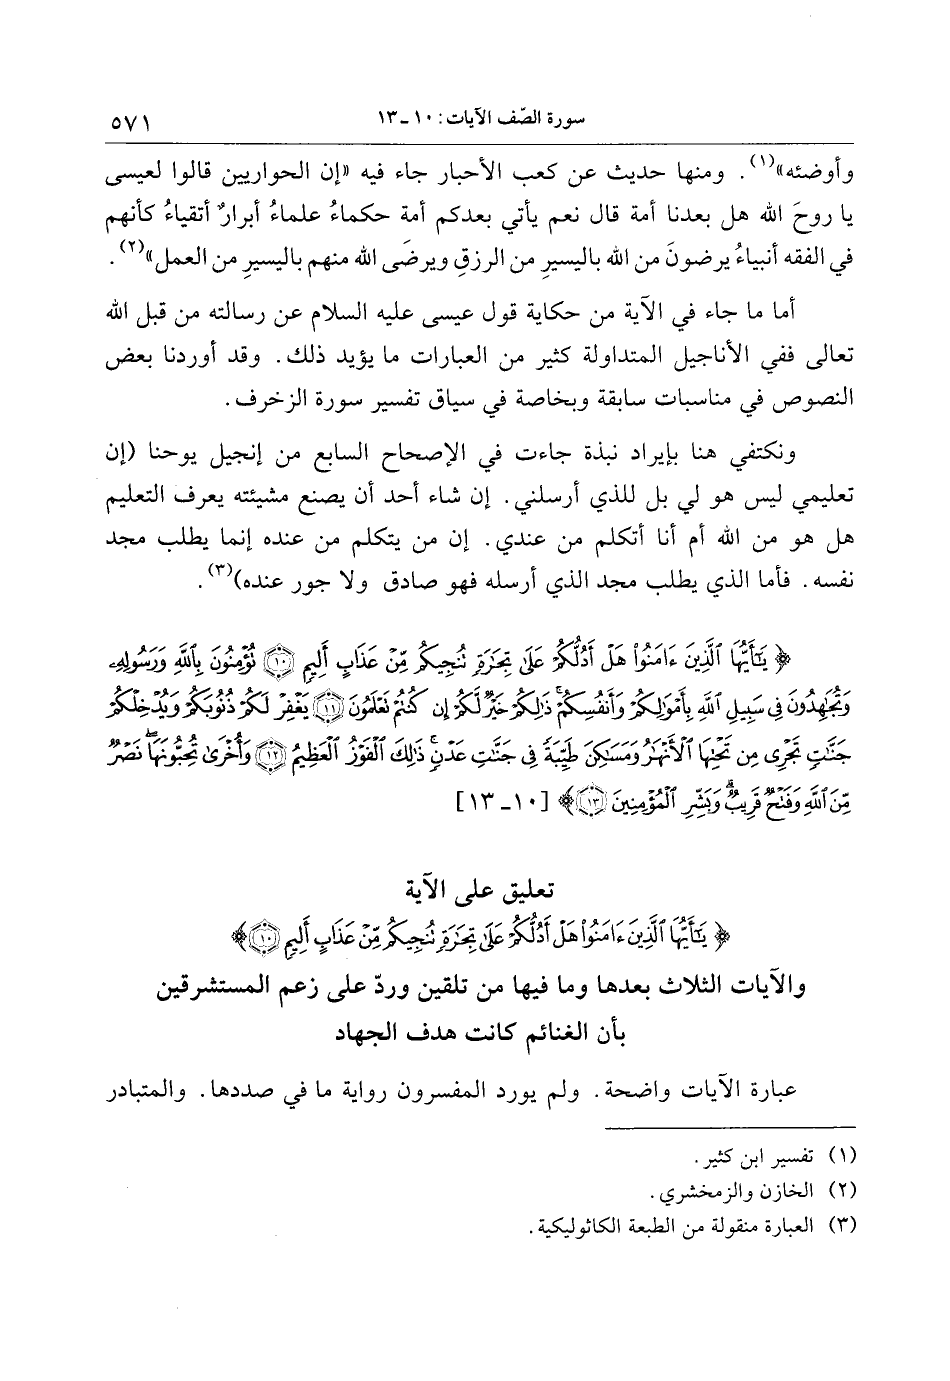 سورة الصّف الآيات: ١٠ ـ ١٣
٥٧١
وأوضئه»(١). ومنها حديث عن كعب الأحبار جاء فيه «إن الحواريين قالوا لعيسى
يا روحَ الله هل بعدنا أمة قال نعم يأتي بعدكم أمة حكماءُ علماءُ أبرارٌ أتقياءُ كأنهم
في الفقه أنبياءُ يرضونَ من الله باليسيرِ من الرزقِ ويرضَى الله منهم باليسيرِ من العمل»(٢).
أما ما جاء في الآية من حكاية قول عيسى عليه السلام عن رسالته من قبل الله
تعالى ففي الأناجيل المتداولة كثير من العبارات ما يؤيد ذلك. وقد أوردنا بعض
النصوص في مناسبات سابقة وبخاصة في سياق تفسير سورة الزخرف.
ونكتفي هنا بإيراد نبذة جاءت في الإصحاح السابع من إنجيل يوحنا (إن
تعليمي ليس هو لي بل للذي أرسلني. إن شاء أحد أن يصنع مشيئته يعرف التعليم
هل هو من الله أم أنا أتكلم من عندي. إن من يتكلم من عنده إنما يطلب مجد
نفسه. فأما الذي يطلب مجد الذي أرسله فهو صادق ولا جور عنده)(٣).
﴿ يَٰٓأَيُّهَا ٱلَّذِينَ ءَامَنُوا۟ هَلْ أَدُلُّكُمْ عَلَىٰ تِجَٰرَةٍ تُنجِيكُم مِّنْ عَذَابٍ أَلِيمٍ ۝١٠ تُؤْمِنُونَ بِٱللَّهِ وَرَسُولِهِۦ
وَتُجَٰهِدُونَ فِى سَبِيلِ ٱللَّهِ بِأَمْوَٰلِكُمْ وَأَنفُسِكُمْ ۚ ذَٰلِكُمْ خَيْرٌ لَّكُمْ إِن كُنتُمْ تَعْلَمُونَ ۝١١ يَغْفِرْ لَكُمْ ذُنُوبَكُمْ وَيُدْخِلْكُمْ
جَنَّٰتٍ تَجْرِى مِن تَحْتِهَا ٱلْأَنْهَٰرُ وَمَسَٰكِنَ طَيِّبَةً فِى جَنَّٰتِ عَدْنٍ ۚ ذَٰلِكَ ٱلْفَوْزُ ٱلْعَظِيمُ ۝١٢ وَأُخْرَىٰ تُحِبُّونَهَا ۖ نَصْرٌ
مِّنَ ٱللَّهِ وَفَتْحٌ قَرِيبٌ ۗ وَبَشِّرِ ٱلْمُؤْمِنِينَ ۝١٣﴾ [١٠ ـ ١٣]
تعليق على الآية
﴿ يَٰٓأَيُّهَا ٱلَّذِينَ ءَامَنُوا۟ هَلْ أَدُلُّكُمْ عَلَىٰ تِجَٰرَةٍ تُنجِيكُم مِّنْ عَذَابٍ أَلِيمٍ ۝١٠﴾
والآيات الثلاث بعدها وما فيها من تلقين وردّ على زعم المستشرقين
بأن الغنائم كانت هدف الجهاد
عبارة الآيات واضحة. ولم يورد المفسرون رواية ما في صددها. والمتبادر
(١) تفسير ابن كثير.
(٢) الخازن والزمخشري.
(٣) العبارة منقولة من الطبعة الكاثوليكية.